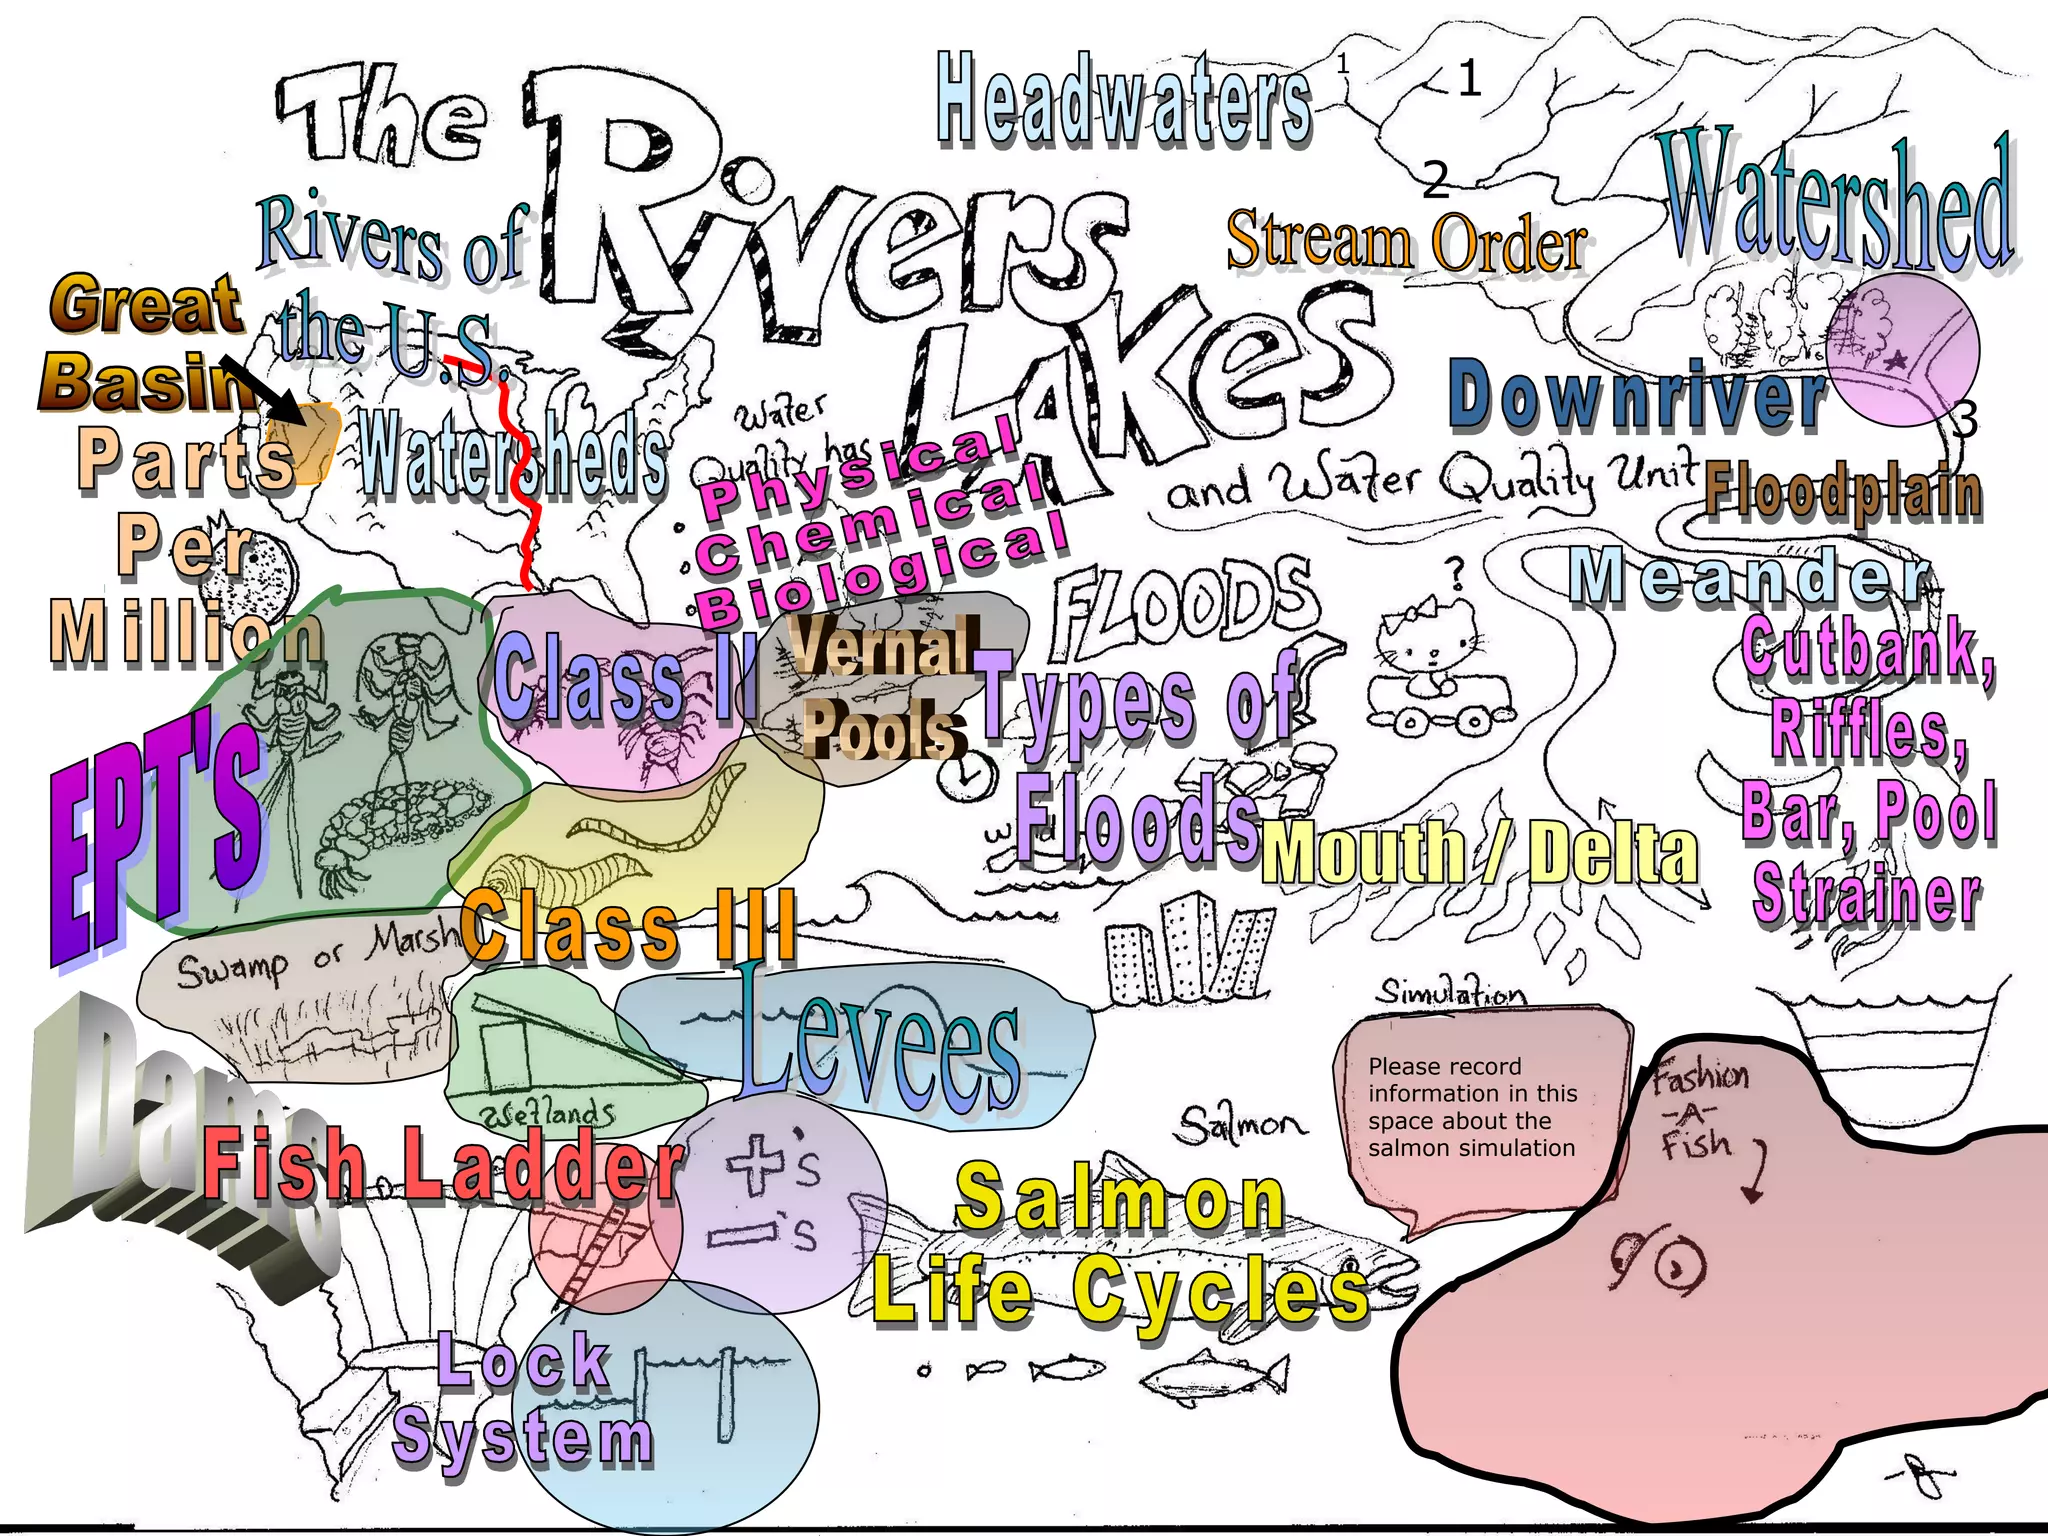 The
Rivers
Lakes
and Water Quality Unit
Headwaters
1
1
2
3
Watershed
Stream Order
Rivers of
the U.S.
Great
Basin
Watersheds
Parts
Per
Million
Water
Quality has
Physical
Chemical
Biological
Downriver
Floodplain
Meander
Cutbank,
Riffles,
Bar, Pool
Strainer
FLOODS
?
Types of
Floods
Vernal
Pools
Class II
EPT's
Class III
Mouth / Delta
Swamp or Marsh
Wetlands
Levees
Dams
Fish Ladder
+'s
-'s
Lock
System
Salmon
Salmon
Life Cycles
Simulation
Please record
information in this
space about the
salmon simulation
Fashion
-A-
Fish